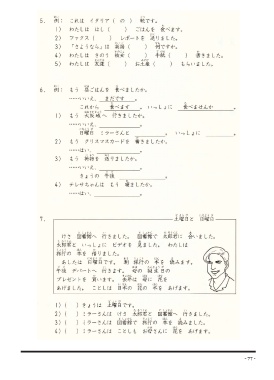 5. 例： これは イタリア（ の ）靴です。
1) わたしは はし（　）ごはんを 食べます。
2) ファックス（　）レポートを 送りました。
3) 「さようなら」は 英語（　）何ですか。
4) わたしは きのう （　）手紙（　）書きました。
5) わたしは 友達（　）お土産（　）もらいました。
6. 例： もう 昼ごはんを 食べましたか。
……いいえ、 まだです 。
これから 食べます 。 いっしょに 食べませんか 。
1) もう 大阪城へ 行きましたか。
……いいえ、 。
日曜日 ミラーさんと 。 いっしょに 。
2) もう クリスマスカードを 書きましたか。
……はい、 。
3) もう 荷物を 送りましたか。
……いいえ、 。
きょうの 午後 。
4) テレサちゃんは もう 寝ましたか。
……はい、 。
7.
土曜日と 日曜日
けさ 図書館へ 行きました。 図書館で 太郎君に 会いました。
太郎君と いっしょに ビデオを 見ました。 わたしは
旅行の 本を 借りました。
あしたは 日曜日です。 朝 旅行の 本を 読みます。
午後 デパートへ 行きます。 母の 誕生日の
プレゼントを 買います。 母に 花を
あげました。 ことしは 日本の 花の 本を あげます。
1) （　）きょうは 土曜日です。
2) （　）ミラーさんは けさ 太郎君と 図書館へ 行きました。
3) （　）ミラーさんは 図書館で 旅行の 本を 読みました。
4) （　）ミラーさんは ことしも お母さんに 花を あげます。
- 77 -